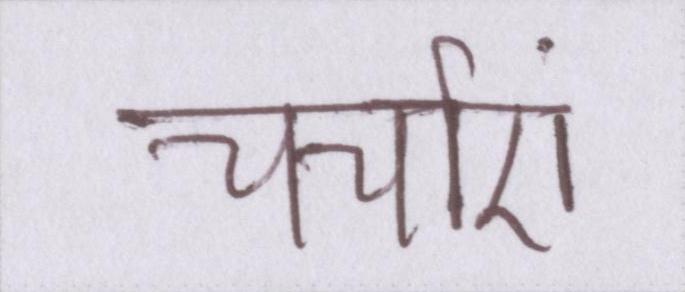 चर्चाएं